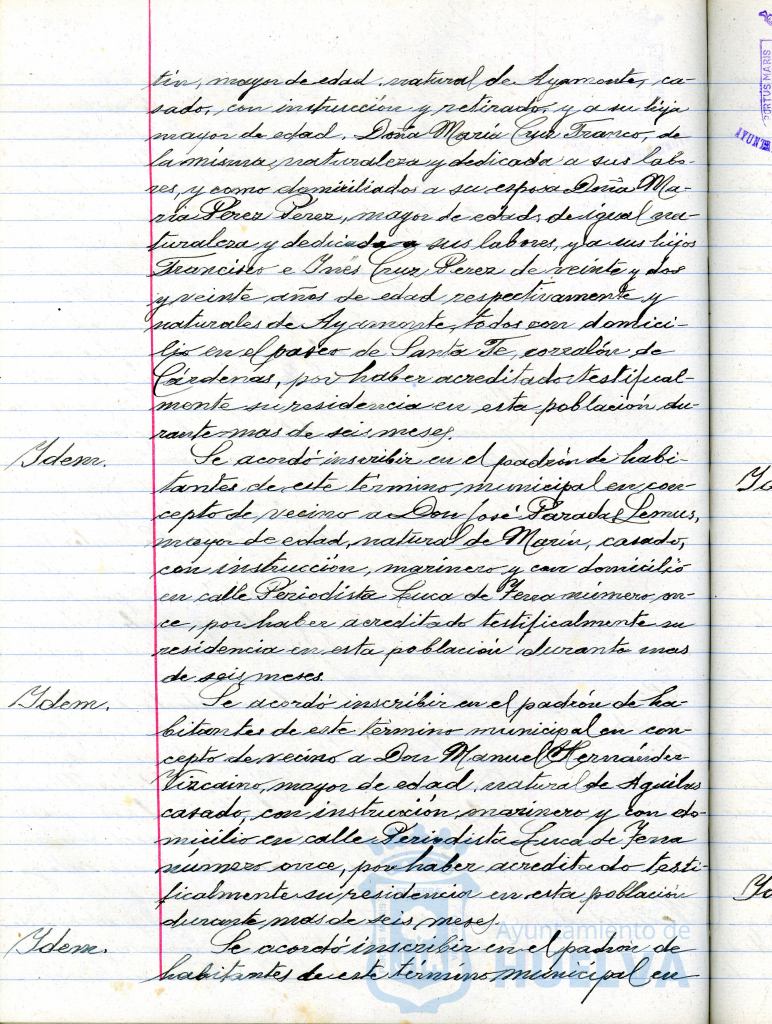 tín, mayor de edad, natural de Ayamonte, ca-
sado, con instrucción y retirado, y a su hija
mayor de edad, Doña María Cruz Franco, de
la misma naturaleza y dedicada a sus labo-
res, y como domiciliados a su esposa Doña Ma-
ría Pérez Pérez, mayor de edad, de igual na-
turaleza y dedicada a sus labores, y a sus hijos
Francisco e Inés Cruz Pérez de veinte y dos
y veinte años de edad respectivamente y
naturales de Ayamonte, todos con domici-
lio en el paseo de Santa Fe, corralón de
Cárdenas, por haber acreditado testifical-
mente su residencia en esta población du-
rante mas de seis meses.
Idem. Se acordó inscribir en el padrón de habi-
tantes de este término municipal en con-
cepto de vecino a Don José Paradas Lemus,
mayor de edad, natural de Marín, casado,
con instrucción, marinero y con domicilio
en calle Periodista Luca de Tena número on-
ce, por haber acreditado testificalmente su
residencia en esta población durante mas
de seis meses.
Idem. Se acordó inscribir en el padrón de ha-
bitantes de este término municipal en con-
cepto de vecino a Don Manuel Hernández
Vizcaino, mayor de edad, natural de Aguilas
casado, con instrucción, marinero y con do-
micilio en calle Periodista Luca de Tena
número once, por haber acreditado testi-
ficalmente su residencia en esta población
durante mas de seis meses.
Idem. Se acordó inscribir en el padrón de
habitantes de este término municipal en
Ayuntamiento de
HUELVA
PORTUS MARIS